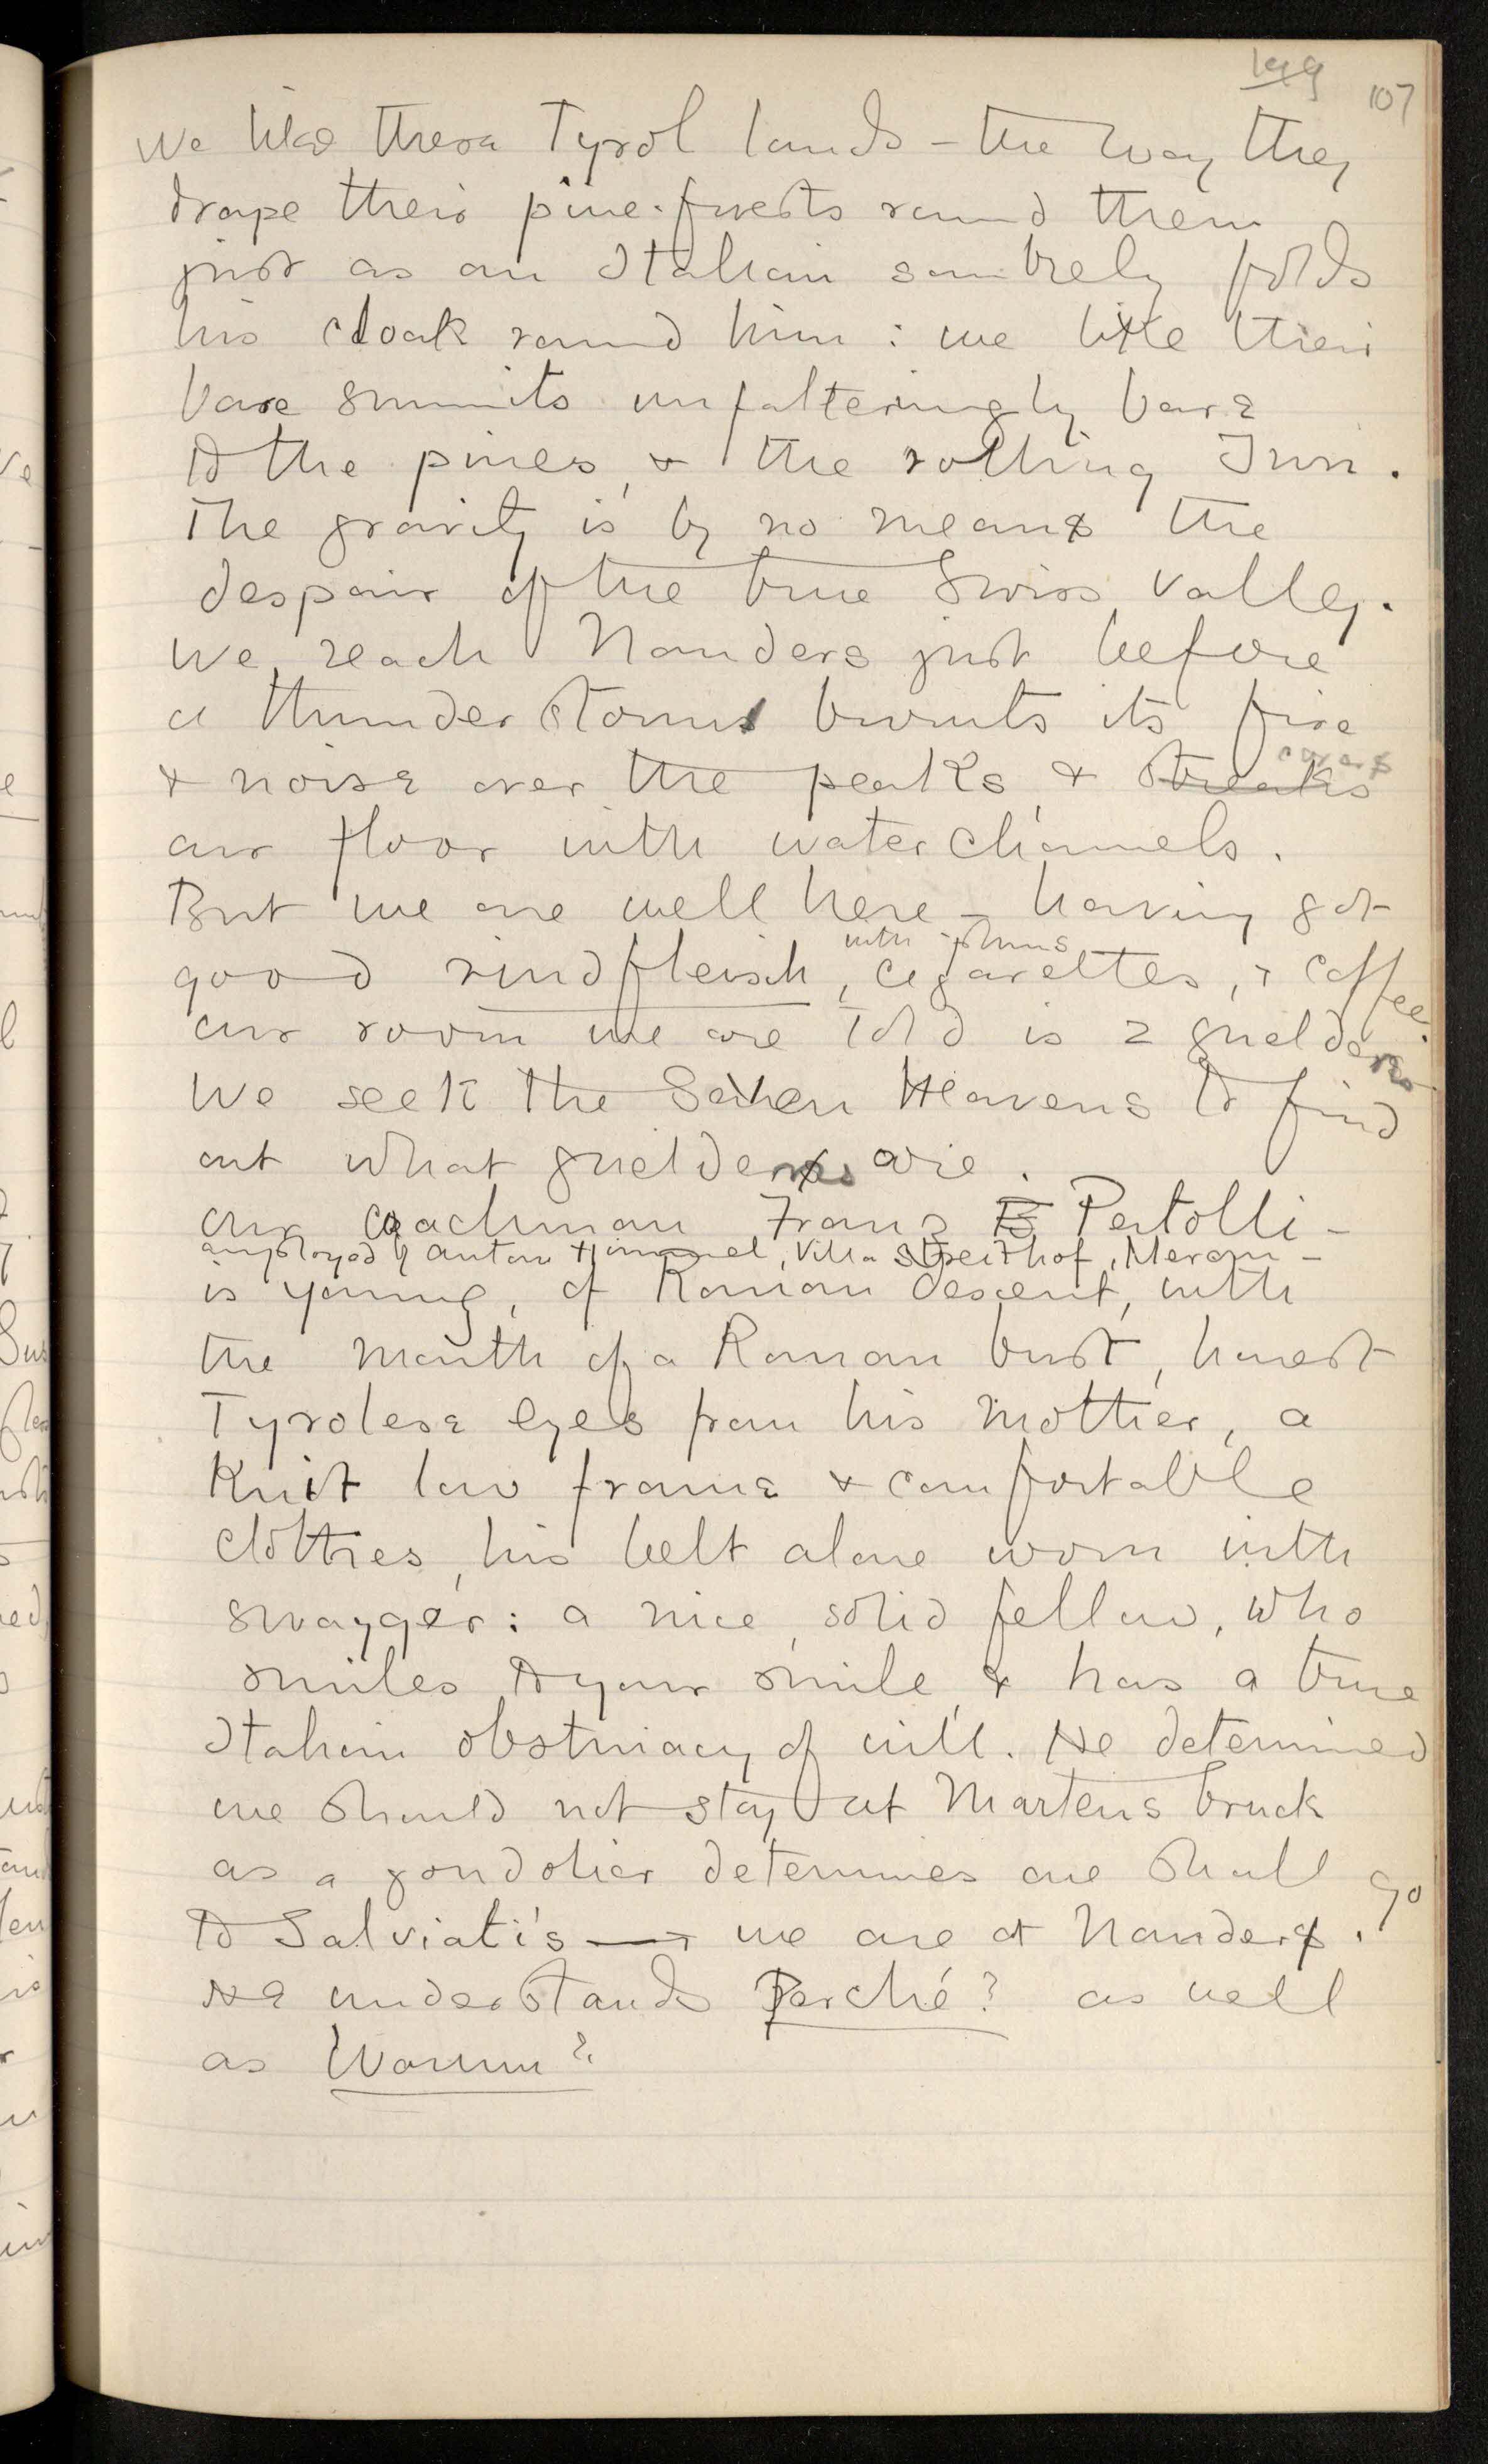 199 107
We like these Tyrol lands – the way they
drape their pine-forests round them
just as an Italian sombrely folds
his cloak round him : we like their
bare summits unfalteringly bare
to the pines, & the rolling Inn.
The gravity is by no means the
despair of the true Swiss valley.
We reach Nauders just before
a thunderstorm bursts its fire
covers
& noise over the peaks, & streaks
our floor with water channels.
But we are well here – having got
with plums
good rindfleisch, cigarettes, & coffee.
our room we are told is 2 guelders
We seek the Seven Heavens to find
out what guelders are.
Our coachman Franz B Pertolli –
employed by Anton Himmel, Villa Speizhof, Meran –
is young, of Roman descent, with
the mouth of a Roman bust, honest
Tyrolese eyes from his mother, a
knit low frame & comfortable
clothes, his belt alone worn with
swagger : a nice, solid fellow, who
smiles to your smile, & has a true
Italian obstinacy of will. He determined
we should not stay at Martensbruck
as a gondolier determines one shall go
to Salviati's — we are at Nauders.
He understands Perché? as well
as Warum?